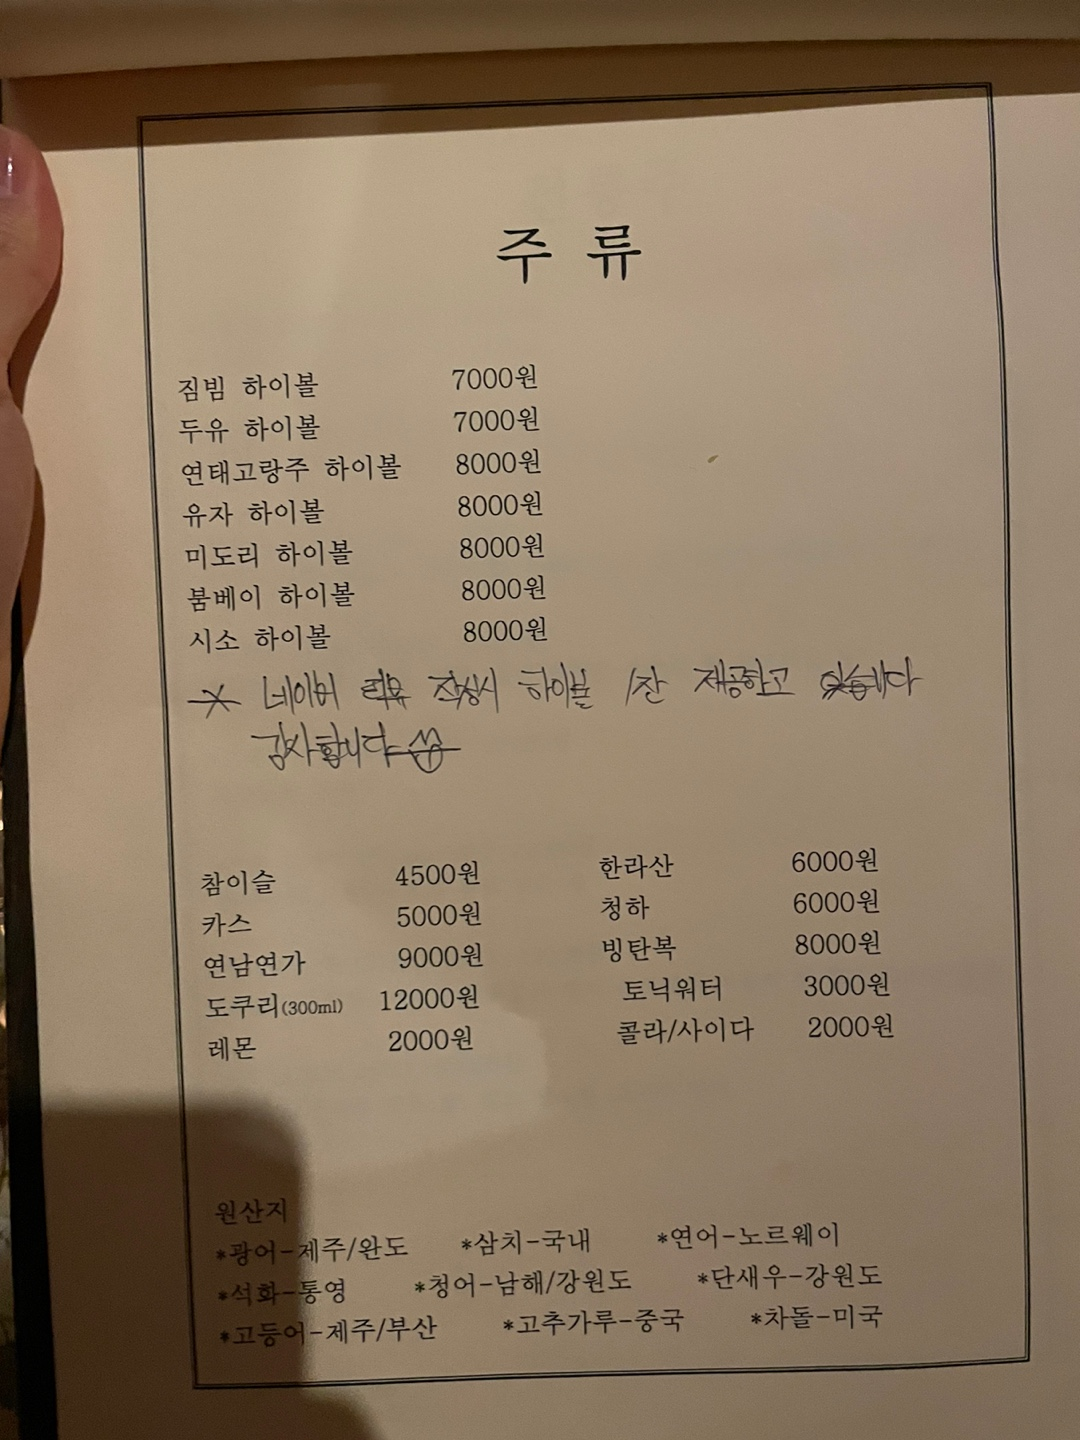 주 류
짐빔 하이볼 7000원
두유 하이볼 7000원
연태고랑주 하이볼 8000원
유자 하이볼 8000원
미도리 하이볼 8000원
붐베이 하이볼 8000원
시소 하이볼 8000원
* 네이버 리뷰 작성시 하이볼 1잔 제공하고 있습니다
감사합니다
참이슬 4500원 한라산 6000원
카스 5000원 청하 6000원
연남연가 9000원 빙탄복 8000원
도쿠리(300ml) 12000원 토닉워터 3000원
레몬 2000원 콜라/사이다 2000원
원산지
*광어-제주/완도 *삼치-국내 *연어-노르웨이
*석화-통영 *청어-남해/강원도 *단새우-강원도
*고등어-제주/부산 *고추가루-중국 *차돌-미국